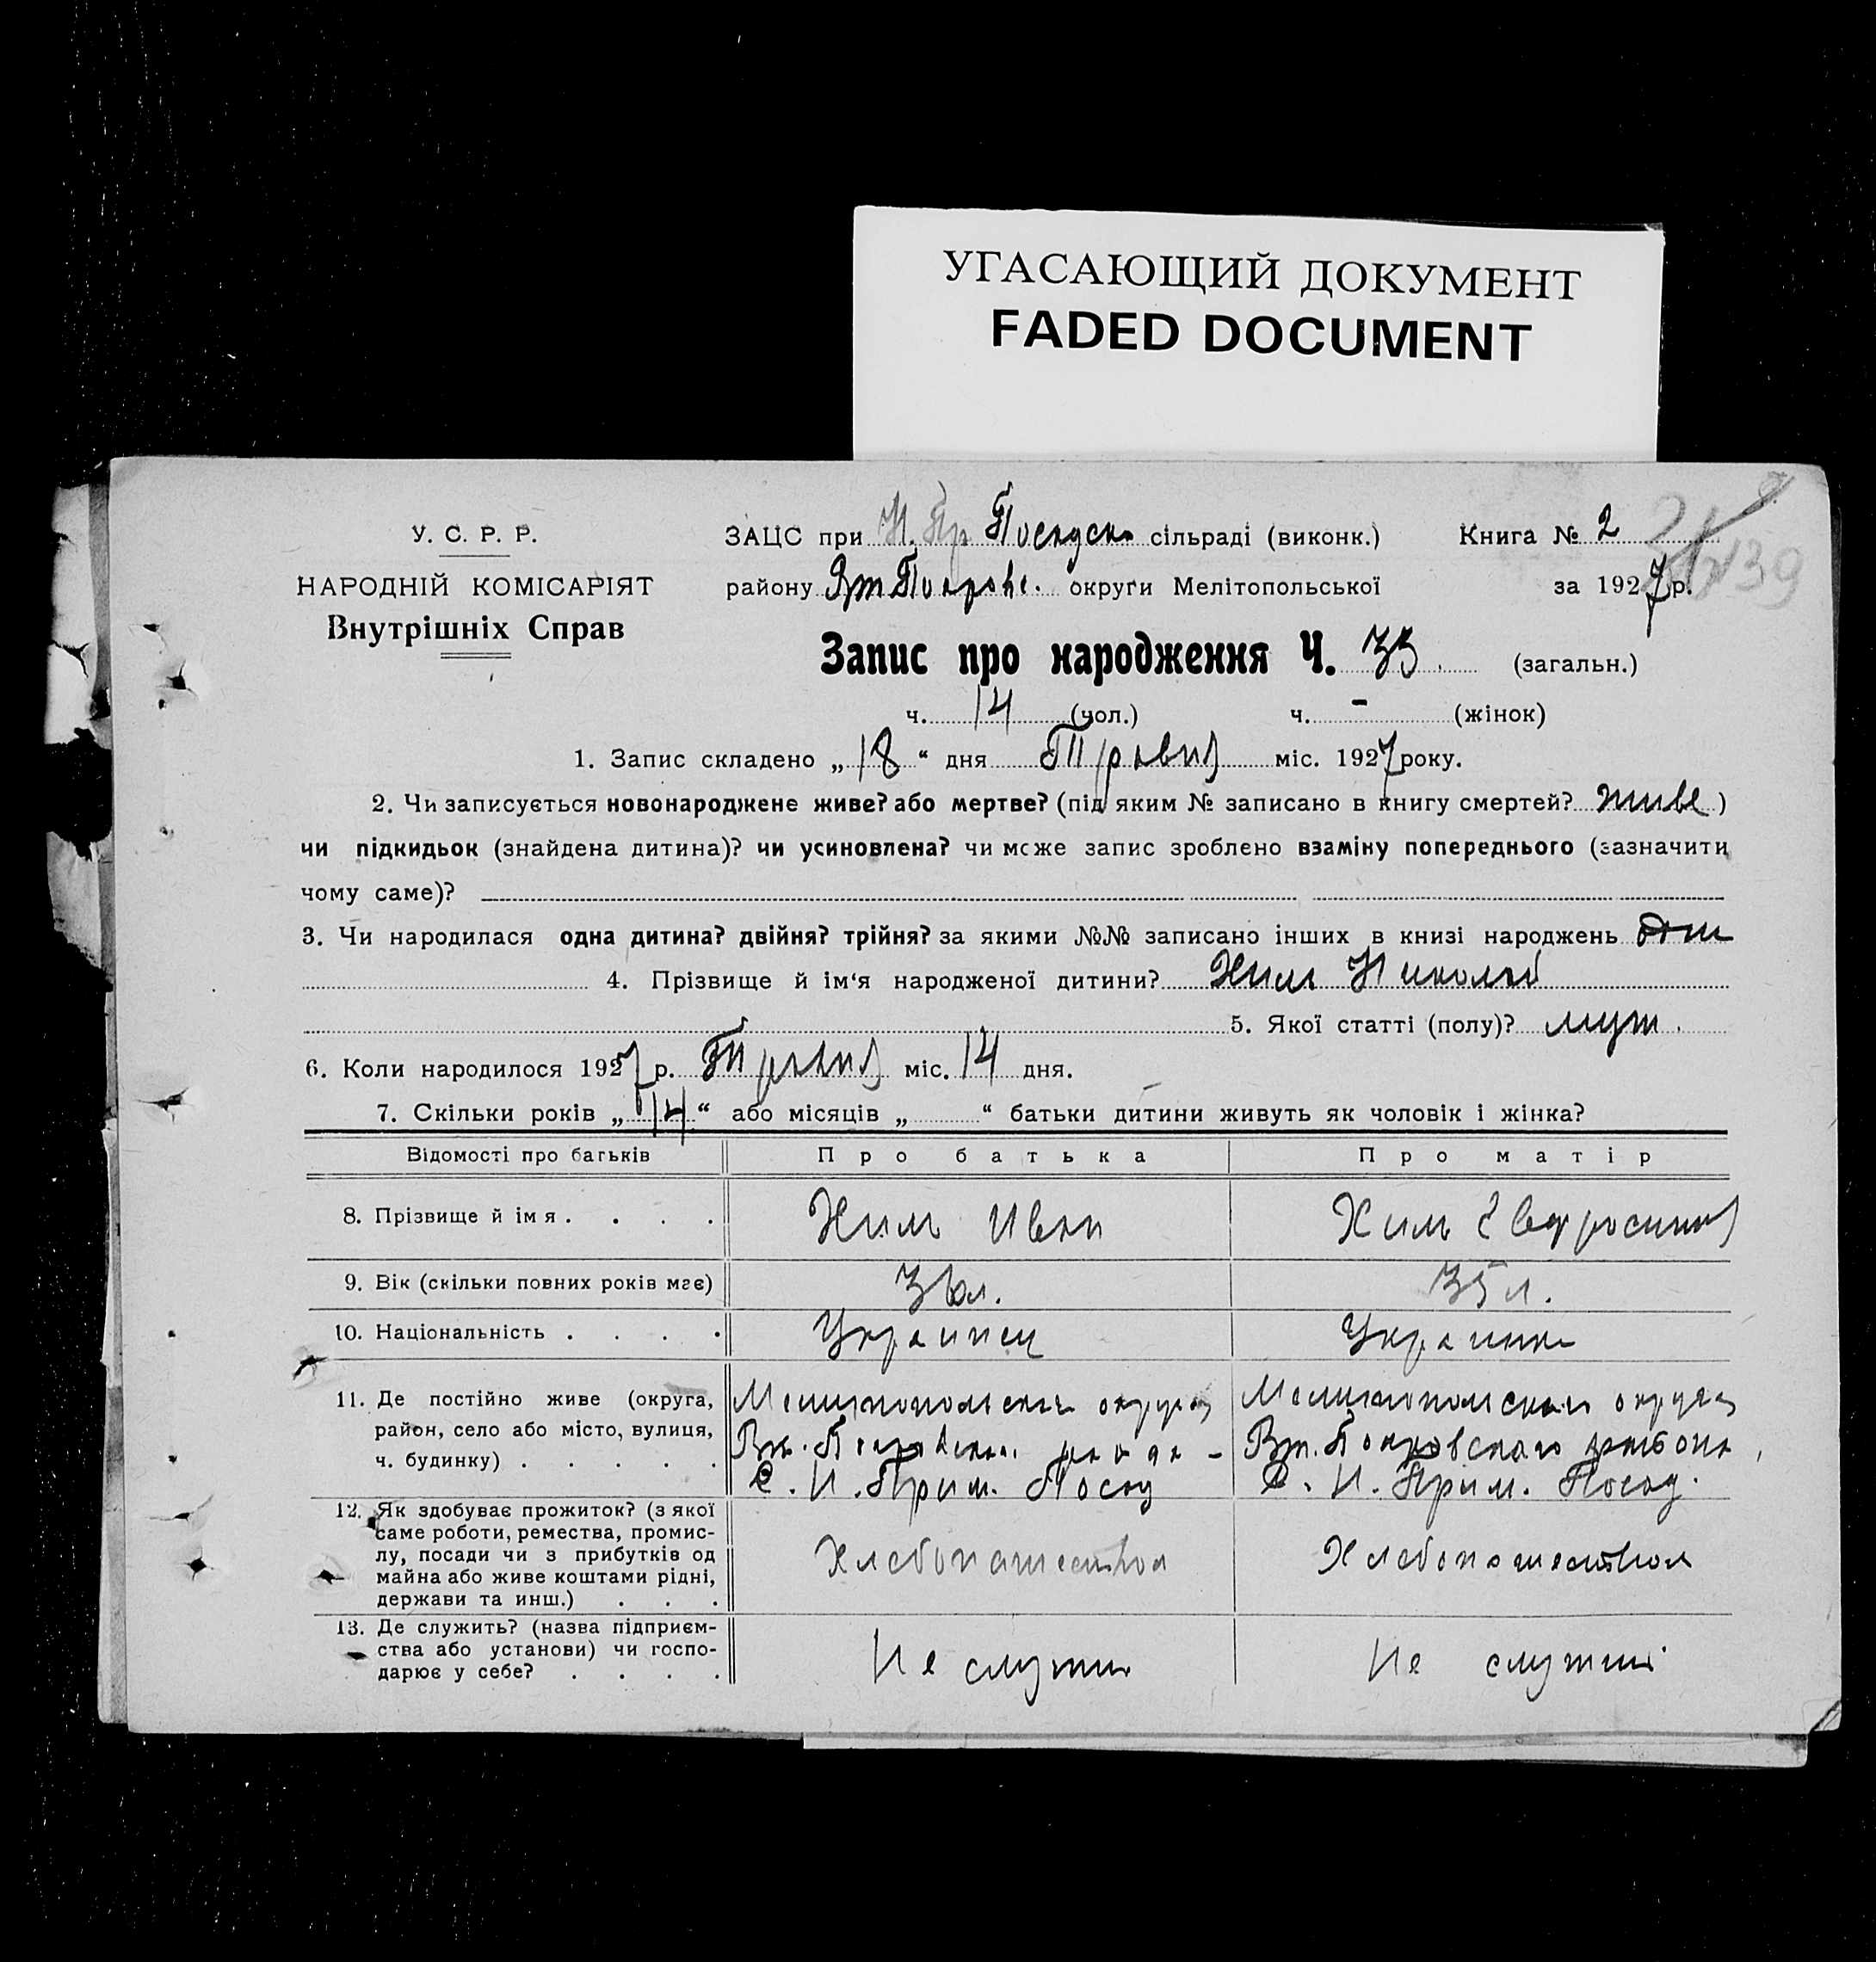 УГАСАЮЩИЙ ДОКУМЕНТ
FADED DOCUMENT
У. С. Р. Р.
НАРОДНІЙ КОМІСАРІЯТ
Внутрішніх Справ
ЗАЦС при Н. Пр Посадско сільраді (виконк.)
району Вт Покровс. округи Мелітопольської
Книга № 2
за 1927 р.
139
Запис про народження Ч. 33. (загальн.)
ч. 14 (чол.) ч. - (жінок)
1. Запис складено „ 18 “ дня Травня міс. 1927 року.
2. Чи записується новонароджене живе? або мертве? (під яким № записано в книгу смертей? живе )
чи підкидьок (знайдена дитина)? чи усиновлена? чи може запис зроблено взаміну попереднього (зазначити
чому саме)?
3. Чи народилася одна дитина? двійня? трійня? за якими №№ записано інших в книзі народжень
4. Прізвище й ім‘я народженої дитини? Хиль Николай
5. Якої статті (полу)? муж.
6. Коли народилося 1927 р. Травня міс. 14 дня.
7. Скільки років „ 14 “ або місяців „ “ батьки дитини живуть як чоловік і жінка?
Відомості про батьків Про батька Про матір
8. Прізвище й імя . . . . Хиль Иван Хиль Евфросиния
9. Вік (скільки повних років має) 36 л. 35 л.
10. Національність . . . . Украинец Украинка
11. Де постійно живе (округа,
район, село або місто, вулиця,
ч. будинку) . . . . .
Мелитопольская округа
Вт. Покровская района
С. Н. Прим. Посад
Мелитопольская округа
Вт. Покровского района,
С. Н. Прим. Посад.
12. Як здобуває прожиток? (з якої
саме роботи, ремества, промис-
лу, посади чи з прибутків од
майна або живе коштами рідні,
держави та инш.) . . .
Хлебопашеством
Хлебопашеством
13. Де служить? (назва підприєм-
ства або установи) чи госпо-
дарює у себе? . . . .
Не служит
Не служит